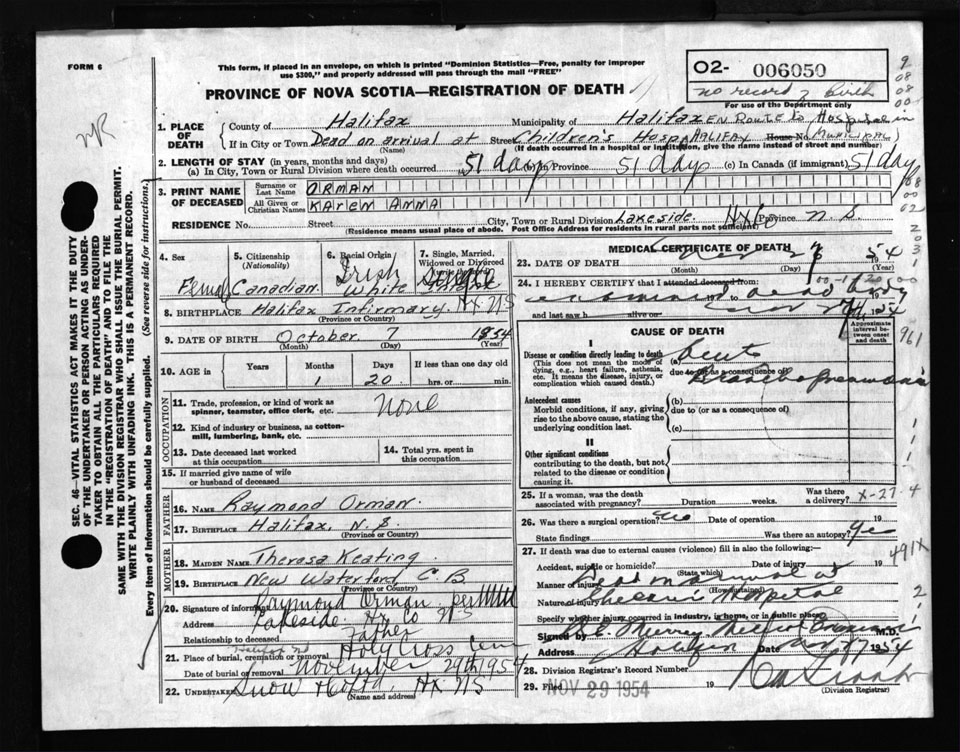 FORM 6
This form, if placed in an envelope, on which is printed "Dominion Statistics—Free, penalty for improper
use $300," and properly addressed will pass through the mail "FREE"
PROVINCE OF NOVA SCOTIA—REGISTRATION OF DEATH
O2- 006050
no record of birth
For use of the Department only
1. PLACE OF DEATH
County of Halifax Municipality of Halifax EN ROUTE to Hospital in
If in City or Town Dead on arrival at Street Children's Hosp HALIFAX House No MUNICIPAL
(Name) (If death occurred in a hospital or institution, give the name instead of street and number)
2. LENGTH OF STAY (in years, months and days)
(a) In City, Town or Rural Division where death occurred 51 days (b) In Province 51 day (c) In Canada (if immigrant) 51 day
3. PRINT NAME OF DECEASED
Surname or Last Name ORMAN
All Given or Christian Names KAREN ANNA
RESIDENCE No. Street City, Town or Rural Division Lakeside. Hfx Province N.S.
(Residence means usual place of abode. Post Office Address for residents in rural parts not sufficient.)
4. Sex
Female
5. Citizenship (Nationality)
Canadian
6. Racial Origin
Irish White
7. Single, Married, Widowed or Divorced
Single
8. BIRTHPLACE Halifax Infirmary. Hx NS
(Province or Country)
9. DATE OF BIRTH October 7 1954
(Month) (Day) (Year)
10. AGE in Years Months Days If less than one day old
1 20 hrs. or min.
OCCUPATION
11. Trade, profession, or kind of work as
spinner, teamster, office clerk, etc. None
12. Kind of industry or business, as cotton-
mill, lumbering, bank, etc.
13. Date deceased last worked
at this occupation
14. Total yrs. spent in
this occupation
15. If married give name of wife
or husband of deceased
FATHER
16. Name Raymond Orman.
17. BIRTHPLACE Halifax, N.S.
MOTHER
18. MAIDEN NAME Theresa Keating
19. BIRTHPLACE New Waterford, C B
(Province or Country)
20. Signature of informant Raymond Orman per
Address Lakeside. Hx Co NS
Relationship to deceased Father
21. Place of burial, cremation or removal Halifax Holy Cross
Date of burial or removal November 29th 1954
22. UNDERTAKER Snow Hx NS
(Name and address)
MEDICAL CERTIFICATE OF DEATH
23. DATE OF DEATH Nov 27 1954
(Month) (Day) (Year)
24. I HEREBY CERTIFY that I attended deceased from:
examined dead body
to
and last saw h alive on
CAUSE OF DEATH
Approximate interval between onset and death
I
Disease or condition directly leading to death
(This does not mean the mode of
dying, e.g., heart failure, asthenia,
etc. It means the disease, injury, or
complication which caused death.)
(a) acute
due to (or as a consequence of)
Bronchopneumonia
Antecedent causes
Morbid conditions, if any, giving
rise to the above cause, stating the
underlying condition last.
(b)
due to (or as a consequence of)
(c)
II
Other significant conditions
contributing to the death, but not
related to the disease or condition
causing it.
25. If a woman, was the death
associated with pregnancy? Duration weeks. Was there a delivery?
X-27 4
26. Was there a surgical operation? no Date of operation 19
State findings Was there an autopsy? Yes
27. If death was due to external causes (violence) fill in also the following:—
Accident, suicide or homicide? Date of injury 19
(State which)
491X
Manner of injury Dead on arrival at
(How sustained)
Nature of injury Children's Hospital
Specify whether injury occurred in industry, in home, or in public place
Signed by Murray M.D.
Halifax Date 27 1954
28. Division Registrar's Record Number
29. Filed NOV 29 1954 19
(Division Registrar)
SEC. 46—VITAL STATISTICS ACT MAKES IT THE DUTY
OF THE UNDERTAKER OR PERSON ACTING AS UNDER-
TAKER TO OBTAIN ALL THE PARTICULARS REQUIRED
IN THE "REGISTRATION OF DEATH" AND TO FILE THE
SAME WITH THE DIVISION REGISTRAR WHO SHALL ISSUE THE BURIAL PERMIT.
WRITE PLAINLY WITH UNFADING INK. THIS IS A PERMANENT RECORD.
Every item of information should be carefully supplied. (See reverse side for instructions.)